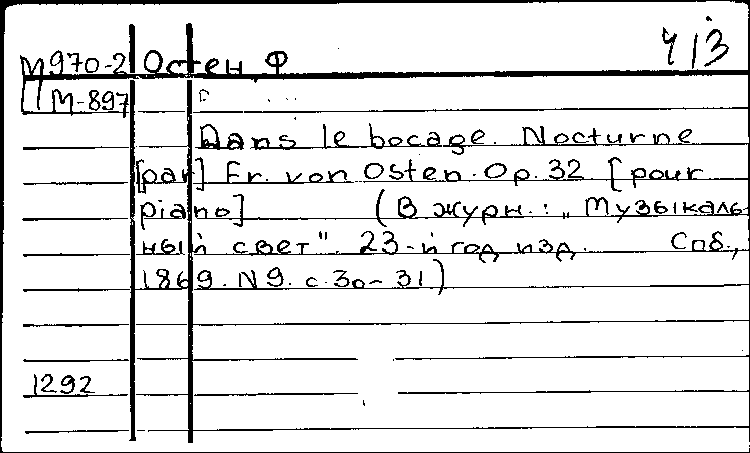 ч 13
М970-2 Остен, Ф
М-897
Dans le bocage. Nocturne
[par] Fr. von Osten. Op. 32. [pour
piano] (В журн.: „Музыкаль-
ный свет". 23-й год изд. Спб.,
1869. N9. с. 30-31)
1292